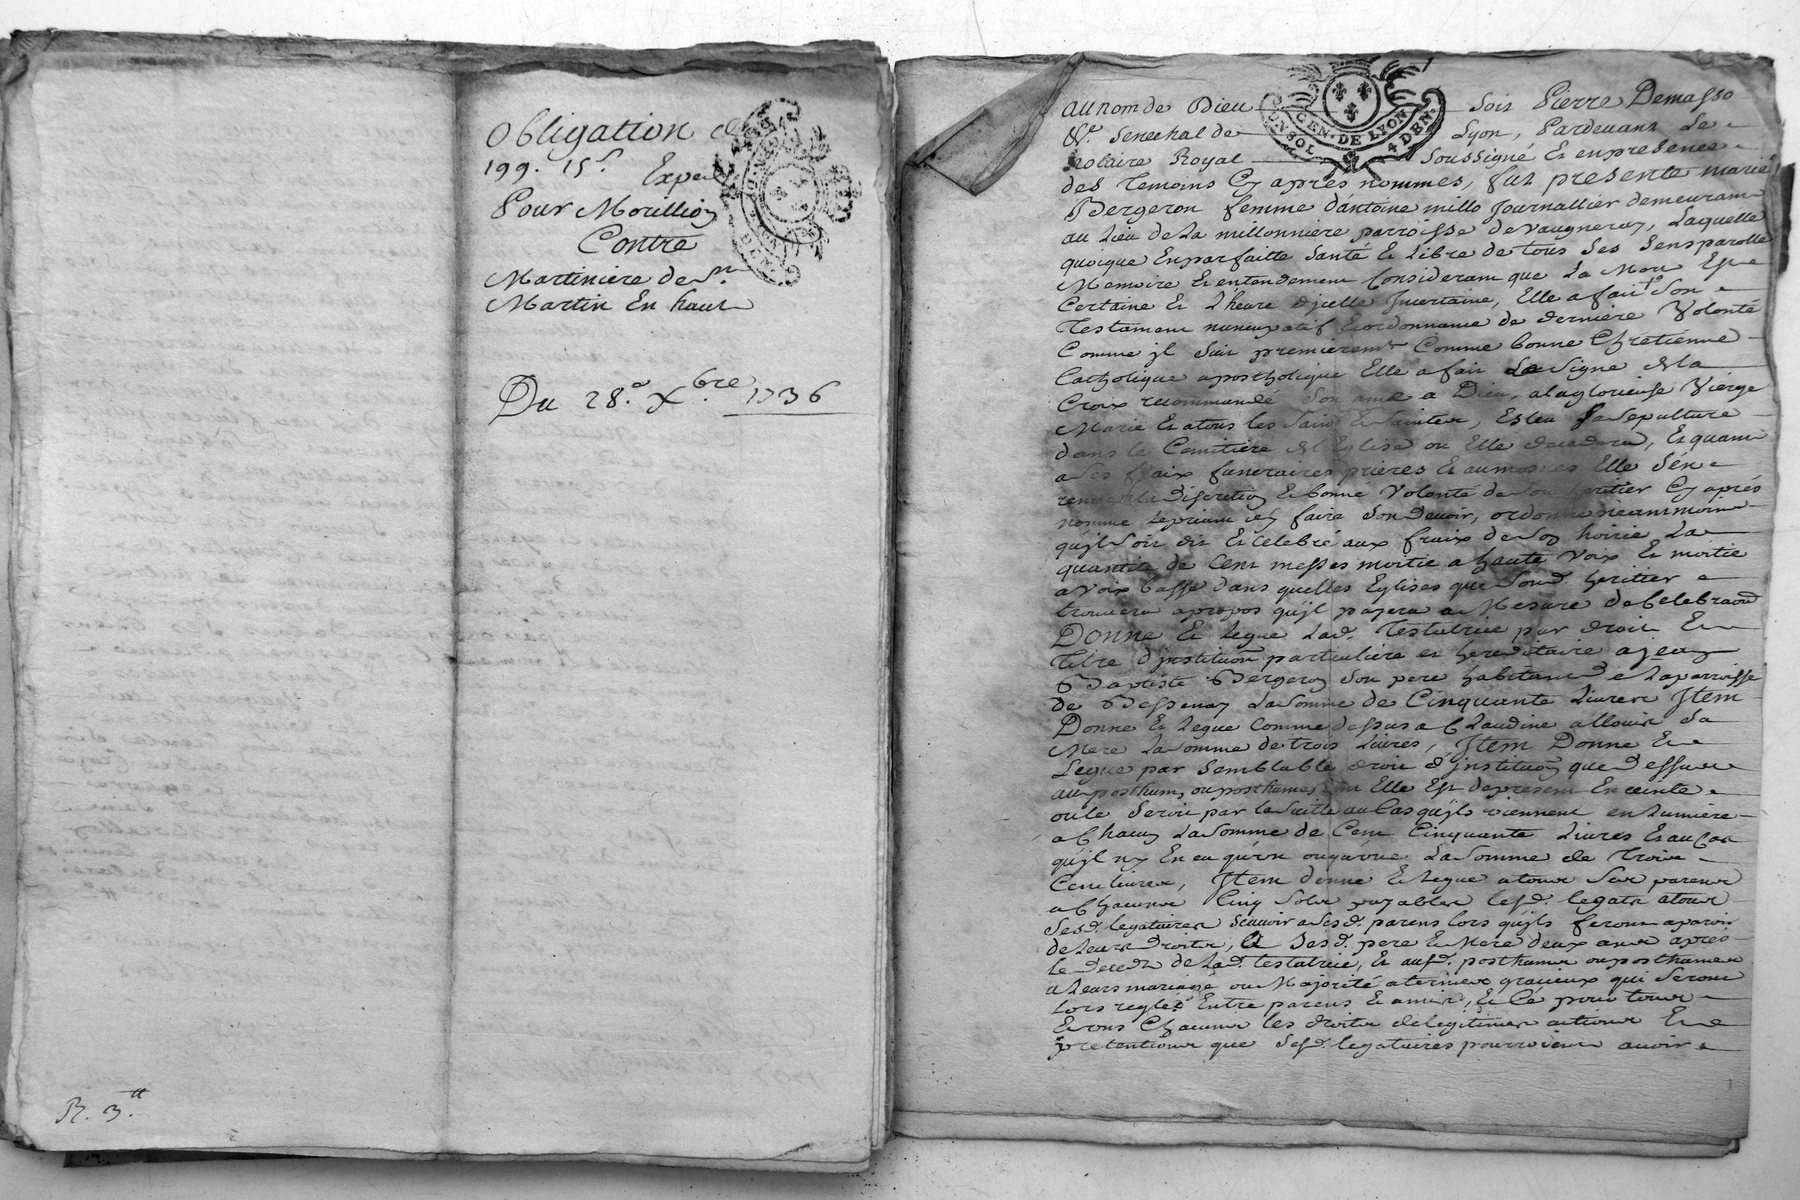 Obligation de
199. 15ˢ. Exped
Pour Morillioȝ
Contre
Martiniere de Sᵗ.
Martin En haut
Du 28.ᵉ Xbre. 1736
R. 3.ᵗᵗ
GEN. DE LYON
4 DEN.
au nom de Dieu Soit Pierre Demasso
Senechal de Lyon, Pardevant Le
Notaire Royal Soussigné Et en presence
des Temoins Cy apres nommes, fut presente marie
Bergeron femme d'antoine millo Journallier demeurant
au Lieu de La millonniere parroisse de Vaugneray, Laquelle
quoique En parfaitte Santé Et Libre de tous Ses Sens parolle
Memoire Et entendement Considerant que La Mort Est
Certaine Et L'heure d'jcelle Jncertaine, Elle a fait Son
Testament nuncupatif Et ordonnance de derniere Volonté
Comme jl Suit premieremᵗ Comme bonne Chretienne
Catholique apostholique Elle a fait Le Signe de La
Croix recommandé Son ame a Dieu, a La glorieuse Vierge
Marie Et a tous les Saints Et Saintes, Esleu Sa Sepulture
dans le Cemitiere de L'Eglise ou Elle decedera, Et quant
a Ses fraix funeraires prieres Et aumosnes Elle S'en
remet a La discretion Et bonne Volonté de Son heritier Cy apres
nommé Le priant d'en faire Son Devoir, ordonne neantmoins
qu'jl Soit dit Et Celebré aux fraix de Son hoirie La
quantité de Cent messes moitie a haute Voix Et moitie
a Voix basse dans quelles Eglises que Sond. heritier
trouvera apropos qu'jl payera a Mesure de Celebraon
Donne Et Legue Lad. Testatrice par droit Et
Titre d'jnstitution particuliere et hereditaire a jean
Baptiste Bergeron Son pere habitant de La parroisse
de Bessenay La Somme de Cinquante Livres Jtem
Donne Et Legue Comme dessus a Claudine allouis Sa
Mere La Somme de trois Livres, Jtem Donne Et
Legue par Semblable droit d'jnstitution que dessus
au posthum, ou posthumes, dont Elle Est dapresent Enceinte
ou le Seroit par la Suitte au Cas qu'jls viennent en Lumiere
a Chacun La Somme de Cent Cinquante Livres Et au Cas
qu'jl n'y En eu qu'un ou qu'une La Somme de Trois
Cent Livres, Jtem donne Et Legue a tous Ses parens
a Chacuns Cinq Sols payables lesd. legats a tous
Sesd. legataires Scavoir a Sesd. parens lors qu'jls feront aparoir
de Leurs Droits, a Sesd. pere Et Mere deux ans après
Le deced de Lad. testatrice, Et ausd. posthumes ou posthumes
a Leurs mariage ou Majorité a termes gracieux qui Seront
Lors reglés Entre parens Et amis, Et Ce pour tous
Et uns Chacuns les droits de legitimes actions Et
pretentions que Sesd. legataires pourroient avoir